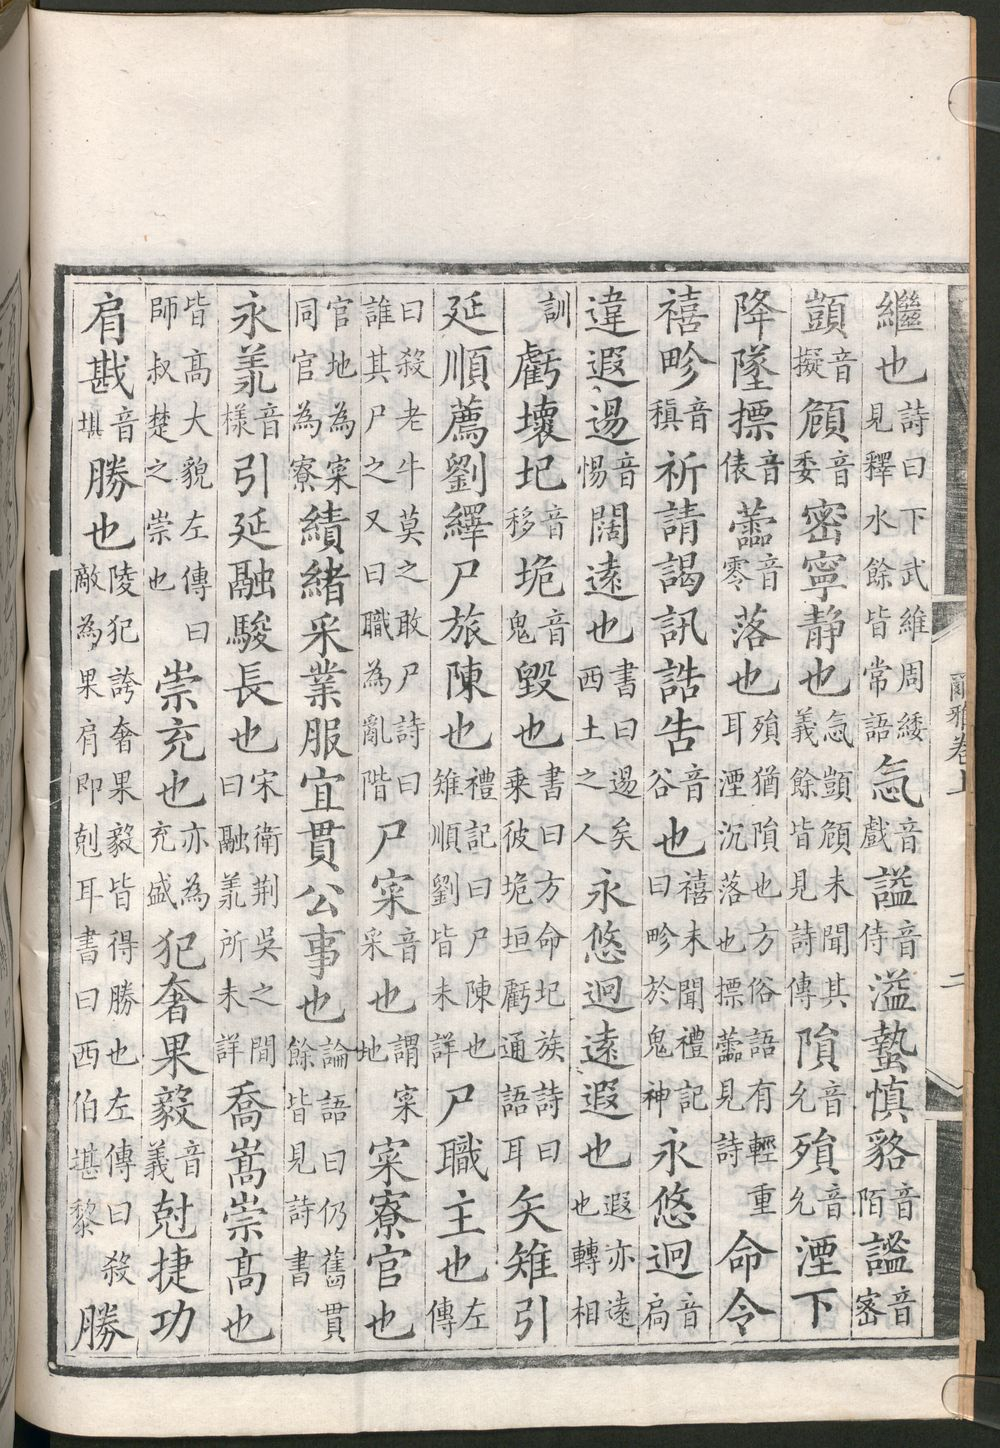 繼也詩曰下武維周緌見釋水餘皆常語忥音戲謚音侍溢蟄慎貉音陌謐音宻
顗音擬頠音委密寧靜也忥顗頠未聞其義餘皆見詩傳隕音允殞音允湮下
降墜摽音俵蘦音零落也殞猶隕也方俗語有輕重耳湮沉落也摽蘦見詩命令
禧畛音稹祈請謁訊誥告音谷也禧未聞禮記曰畛於鬼神永悠迥音扃
違遐逷音惕闊遠也書曰逷矣西土之人永悠迥遠遐也遐亦遠也轉相
訓虧壞圮音移垝音鬼毀也書曰方命圮族詩曰乘彼垝垣虧通語耳矢雉引
延順薦劉繹尸旅陳也禮記曰尸陳也雉順劉皆未詳尸職主也左傳
曰殺老牛莫之敢尸詩曰誰其尸之又曰職為亂階尸寀音采也謂寀地寀寮官也
官地為寀同官為寮績緒采業服宜貫公事也論語曰仍舊貫餘皆見詩書
永羕音樣引延融駿長也宋衛荊吳之間曰融羕所未詳喬嵩崇高也
皆高大貌左傳曰師叔楚之崇也崇充也亦為充盛犯奢果毅音義尅捷功
肩戡音堪勝也陵犯誇奢果毅皆得勝也左傳曰殺敵為果肩即剋耳書曰西伯堪黎勝
爾雅卷上
二